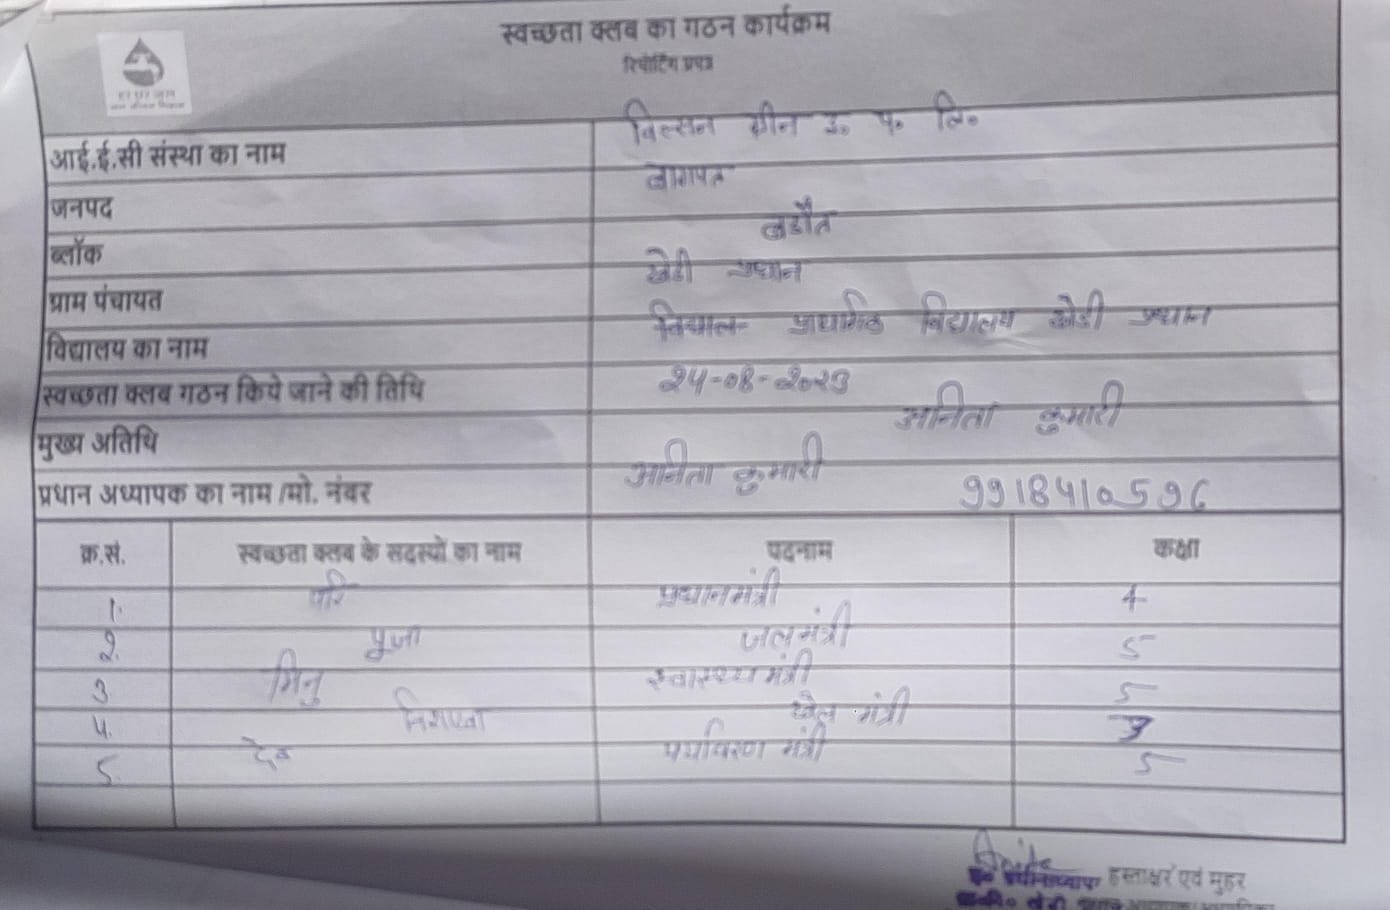 स्वच्छता क्लब का गठन कार्यक्रम
रिपोर्टिंग प्रपत्र
हर घर जल
आई.ई.सी संस्था का नाम विल्सन ग्रीन इ. प. लि.
जनपद बागपत
ब्लॉक बडौत
ग्राम पंचायत खेडी प्रधान
विद्यालय का नाम प्राथमिक विद्यालय खेडी प्रधान
स्वच्छता क्लब गठन किये जाने की तिथि 24-08-2023
मुख्य अतिथि अनिता कुमारी
प्रधान अध्यापक का नाम /मो. नंबर अनिता कुमारी
क्र.सं. स्वच्छता क्लब के सदस्यो का नाम पदनाम कक्षा
1. परि प्रधानमंत्री 4
2. पूजा जलमंत्री 5
3 मिनु स्वास्थ्य मंत्री 5
4. खेल मंत्री 3
5. देव पर्यावरण मंत्री 5
हस्ताक्षर एवं मुहर